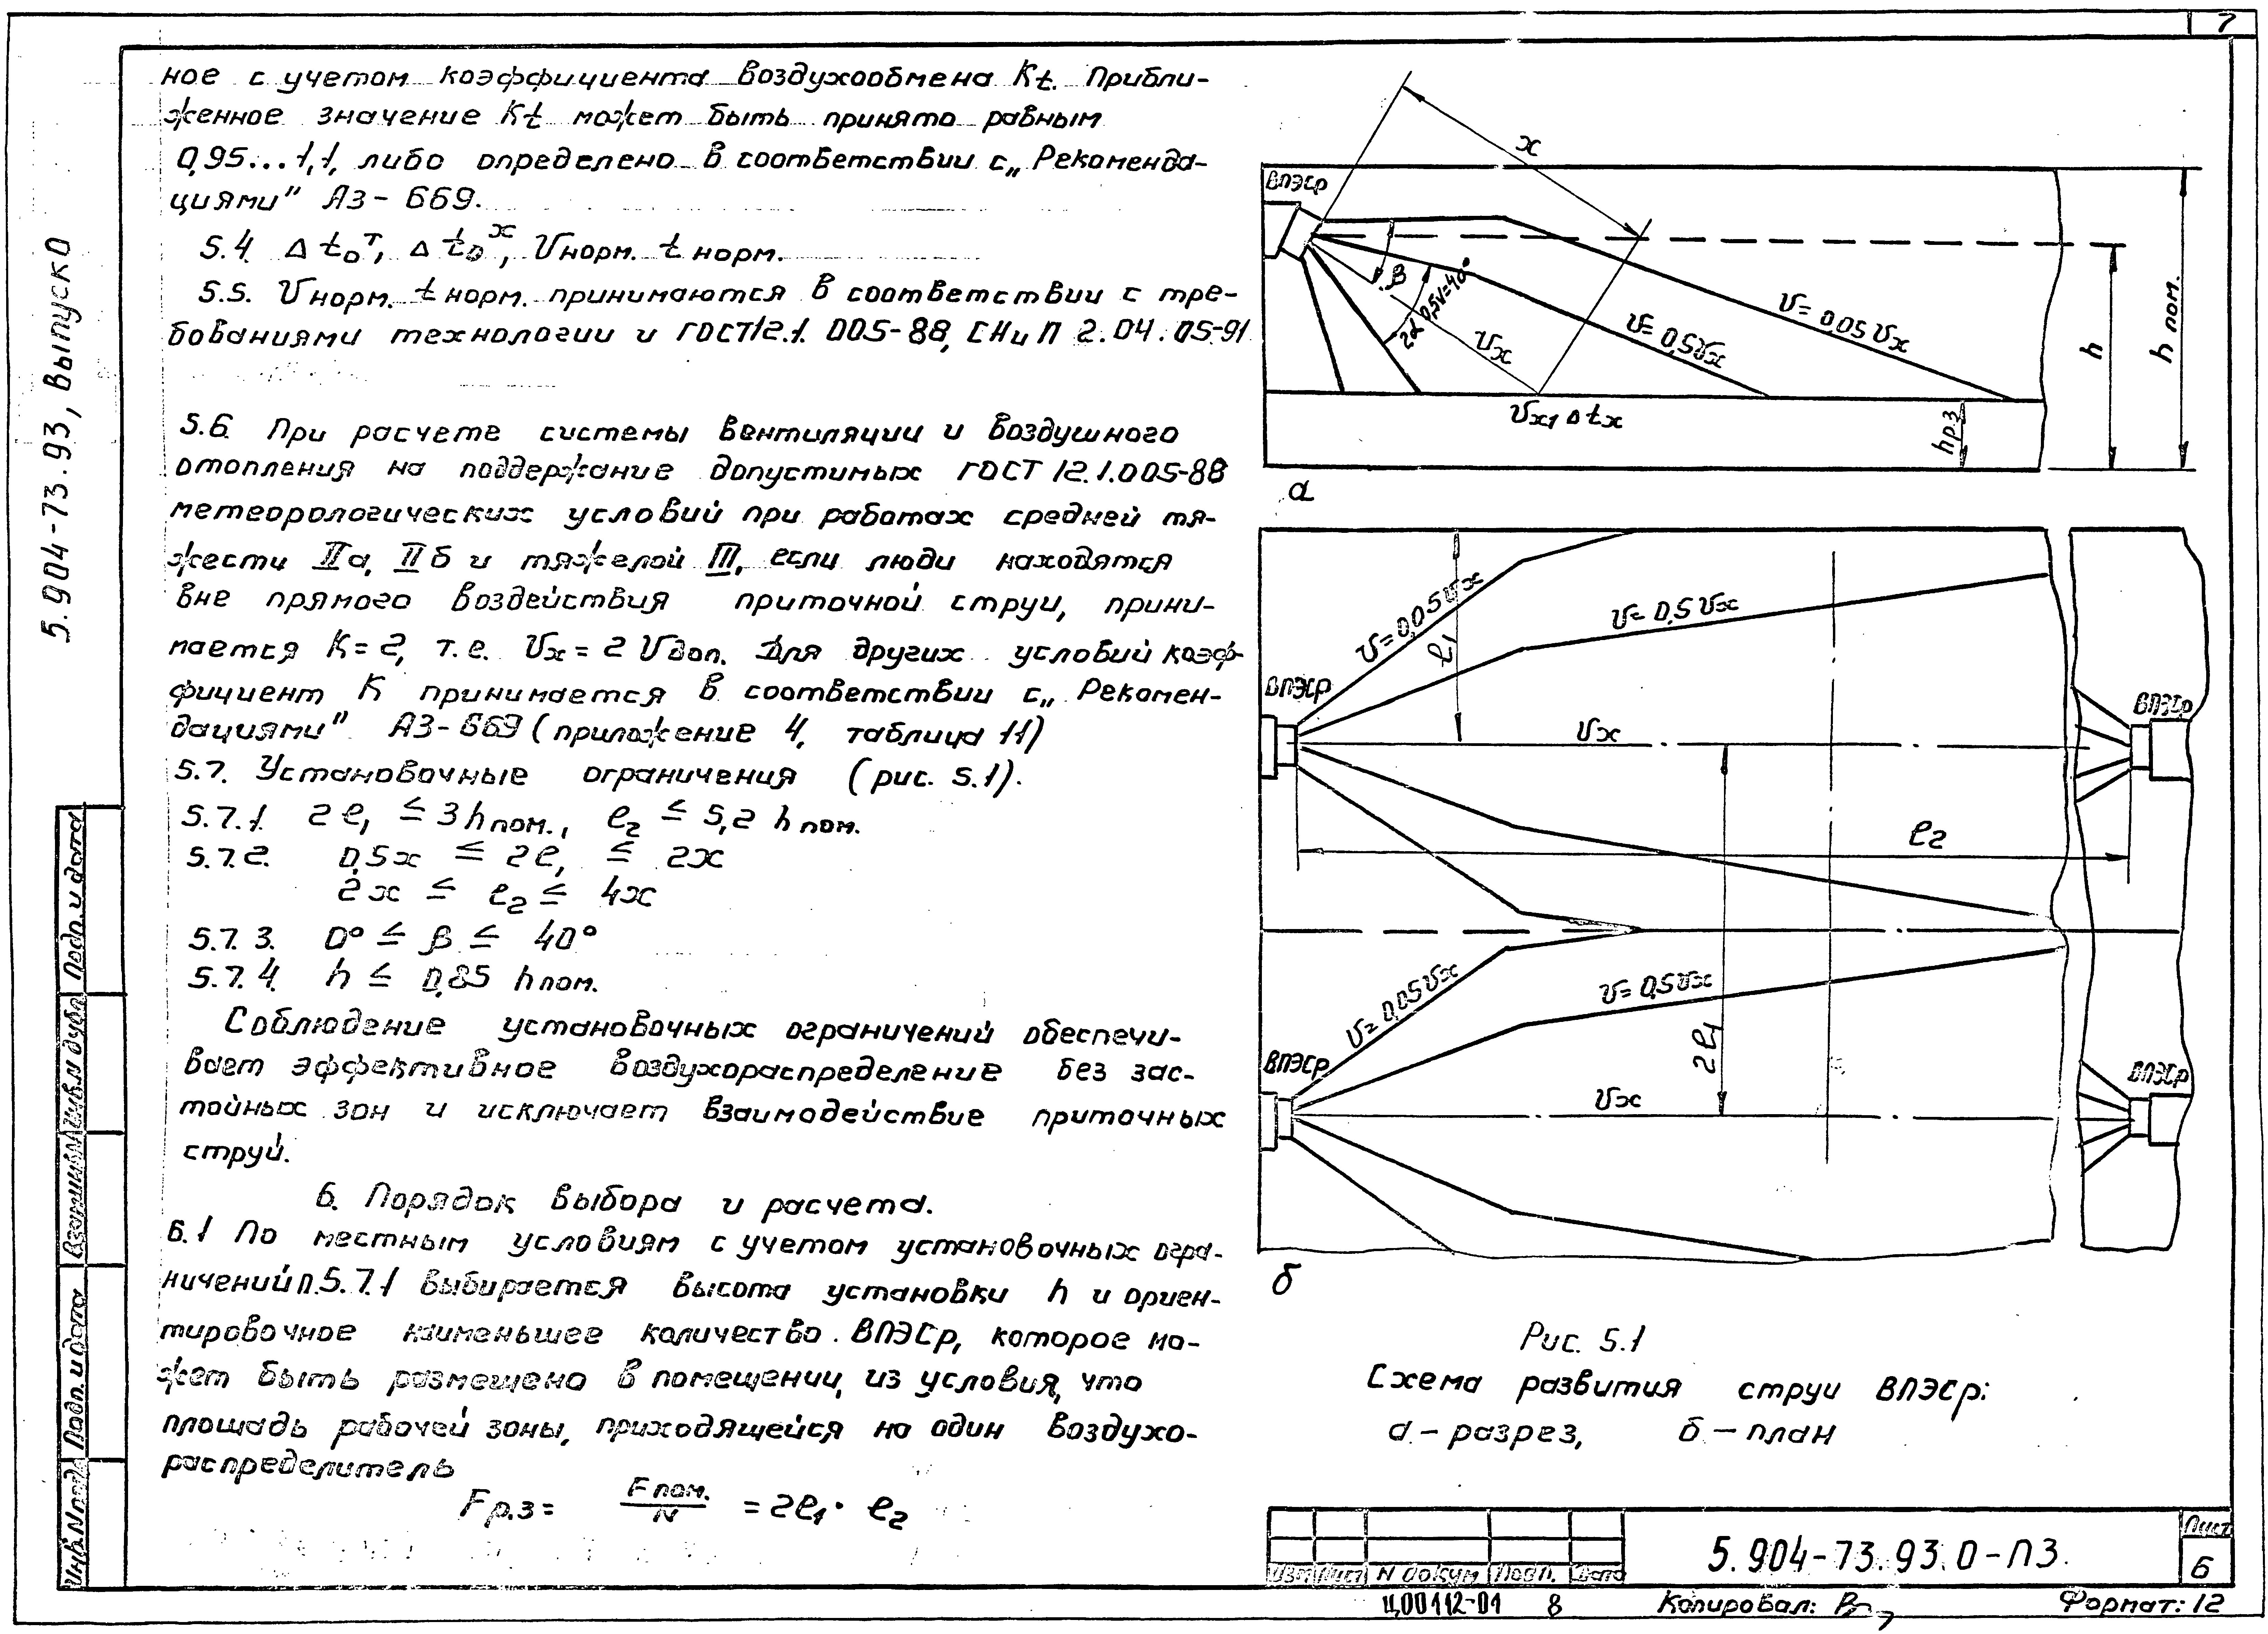 7
ное с учетом коэффициента воздухообмена Kt. Прибли-
женное значение Kt может быть принято равным
0,95...1,1, либо определено в соответствии с „Рекоменда-
циями" АЗ-669.
5.4. Δt₀ᵀ, Δt₀ˣ, Vнорм. tнорм.
5.5. Vнорм. tнорм. принимаются в соответствии с тре-
бованиями технологии и ГОСТ12.1.005-88, СНиП 2.04.05-91
5.6. При расчете системы вентиляции и воздушного
отопления на поддержание допустимых ГОСТ 12.1.005-88
метеорологических условий при работах средней тя-
жести IIа, IIб и тяжелой III, если люди находятся
вне прямого воздействия приточной струи, прини-
мается К=2, т.е. Vx = 2 Vдоп. Для других условий коэф-
фициент К принимается в соответствии с „Рекомен-
дациями" АЗ-669 (приложение 4, таблица 11)
5.7. Установочные ограничения (рис. 5.1).
5.7.1. 2ℓ₁ ≤ 3hпом., ℓ₂ ≤ 5,2 hпом.
5.7.2. 0,5x ≤ 2ℓ₁ ≤ 2x
2x ≤ ℓ₂ ≤ 4x
5.7.3. 0° ≤ β ≤ 40°
5.7.4. h ≤ 0,85 hпом.
Соблюдение установочных ограничений обеспечи-
вает эффективное воздухораспределение без зас-
тойных зон и исключает взаимодействие приточных
струй.
6. Порядок выбора и расчета.
6.1 По местным условиям с учетом установочных огра-
ничений п.5.7.1 выбирается высота установки h и ориен-
тировочное наименьшее количество ВПЭСр, которое мо-
жет быть размещено в помещении, из условия, что
площадь рабочей зоны, приходящейся на один воздухо-
распределитель
Fр.з = Fпом./N = 2ℓ₁ · ℓ₂
ВПЭСр
x
β
2α 0,5v=40°
Vx
V= 0,5Vx
V= 0,05Vx
Vx1 Δtx
hрз
h
hпом.
а
V= 0,05Vx
ℓ₁
V= 0,5Vx
ВПЭСр
Vx
ВПЭСр
ℓ₂
V= 0,05Vx
V= 0,5Vx
2ℓ₁
ВПЭСр
Vx
ВПЭСр
б
Рис. 5.1
Схема развития струи ВПЭСр:
а - разрез, б - план
5.904-73.93, Выпуск 0
Подп. и дата
Инв.N дубл
Взам.инв.N
Подп. и дата
Инв.N подл
Изм Лист N докум Подп. Дата
5.904-73.93.0-ПЗ.
Лист
6
Ц00112-01 8 Копировал: Формат: 12